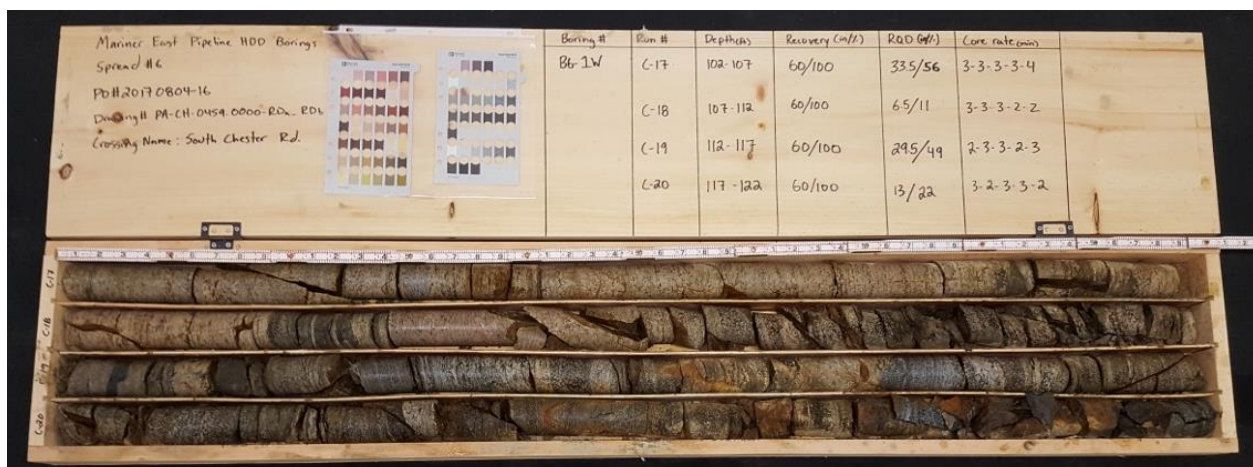 Mariner East Pipeline HDD Borings
Spread #6
PO# 20170804-16
Drawing# PA-CH-0454.0000-RDb
Crossing Name: South Chester Rd.
Boring # Run # Depth(ft) Recovery (in/%) RQD (in/%) Core rate (min)
B6-1W C-17 102-107 60/100 33.5/56 3-3-3-3-4
C-18 107-112 60/100 6.5/11 3-3-3-2-2
C-19 112-117 60/100 29.5/49 2-3-3-2-3
C-20 117-122 60/100 13/22 3-2-3-3-2
C-17
C-18
C-20